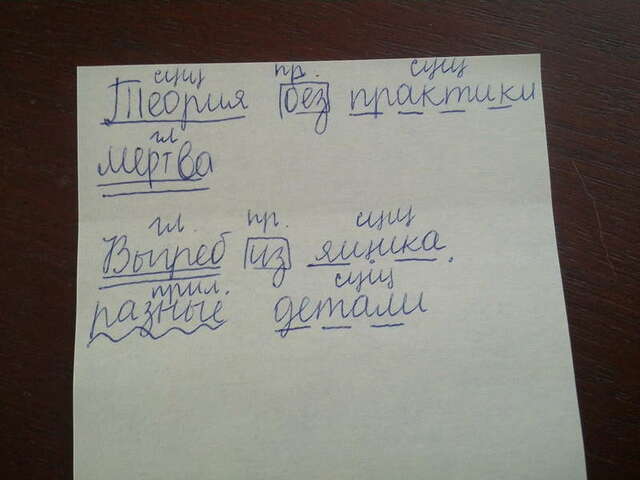 сущ пр. сущ
Теория без практики
гл
мертва
гл. пр. сущ
Выгреб из ящика.
прил. сущ
разные детали